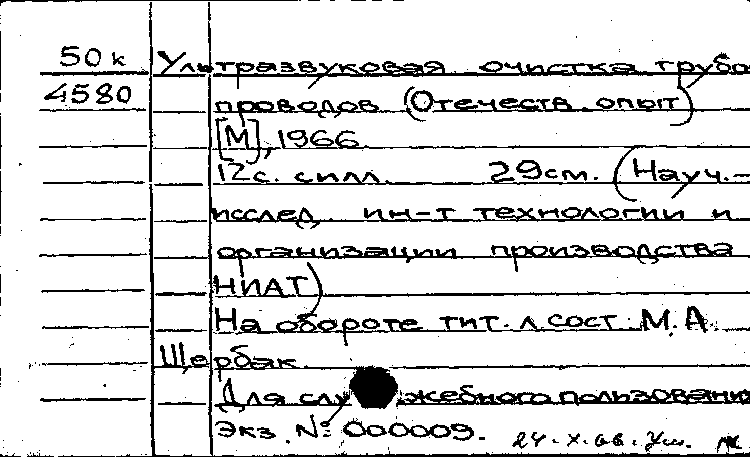 50к Ультразвуковая очистка трубо
4580 проводов (Отечеств. опыт)
[М], 1966.
12с. силл. 29см. (Науч.-
исслед. ин-т технологии и
организации производства
НИАТ)
На обороте тит. л. сост. М. А.
Щербак.
Для служебного пользования
Экз. № 000009. 24.X.66.